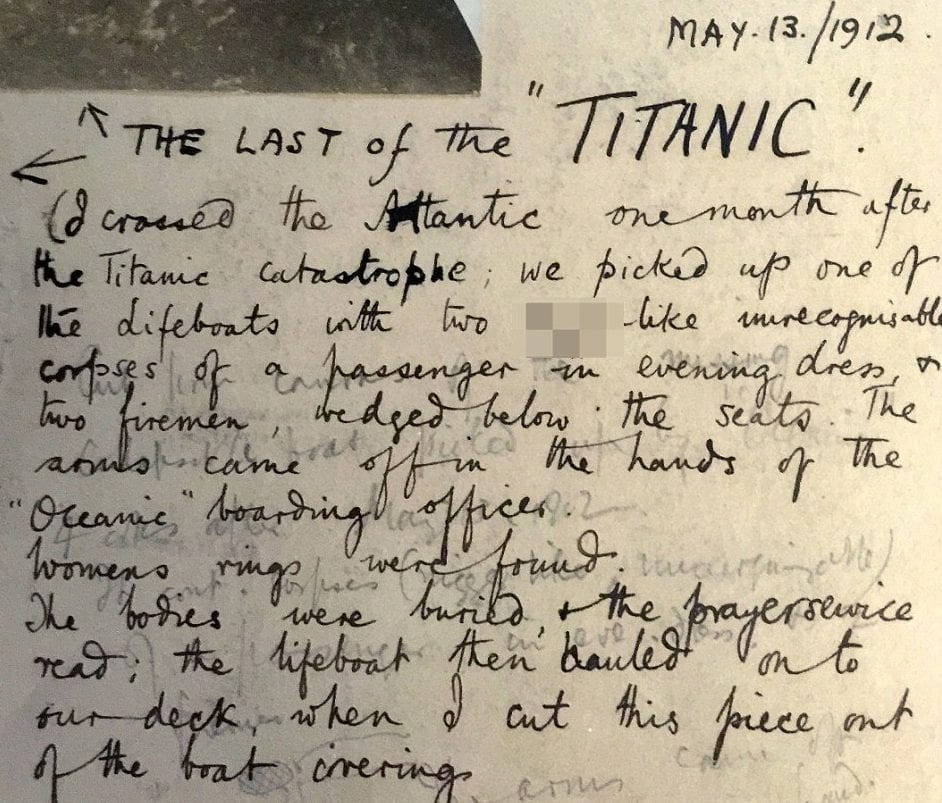 MAY. 13. /1912.
THE LAST of the "TITANIC".
(I crossed the Atlantic one month after
the Titanic catastrophe; we picked up one of
the lifeboats with two -like unrecognisable
corpses of a passenger in evening dress, &
two firemen, wedged below the seats. The
arms came off in the hands of the
"Oceanic" boarding officer.
Womens rings were found.
The bodies were buried, & the prayerservice
read; the lifeboat then hauled on to
our deck, when I cut this piece out
of the boat coverings